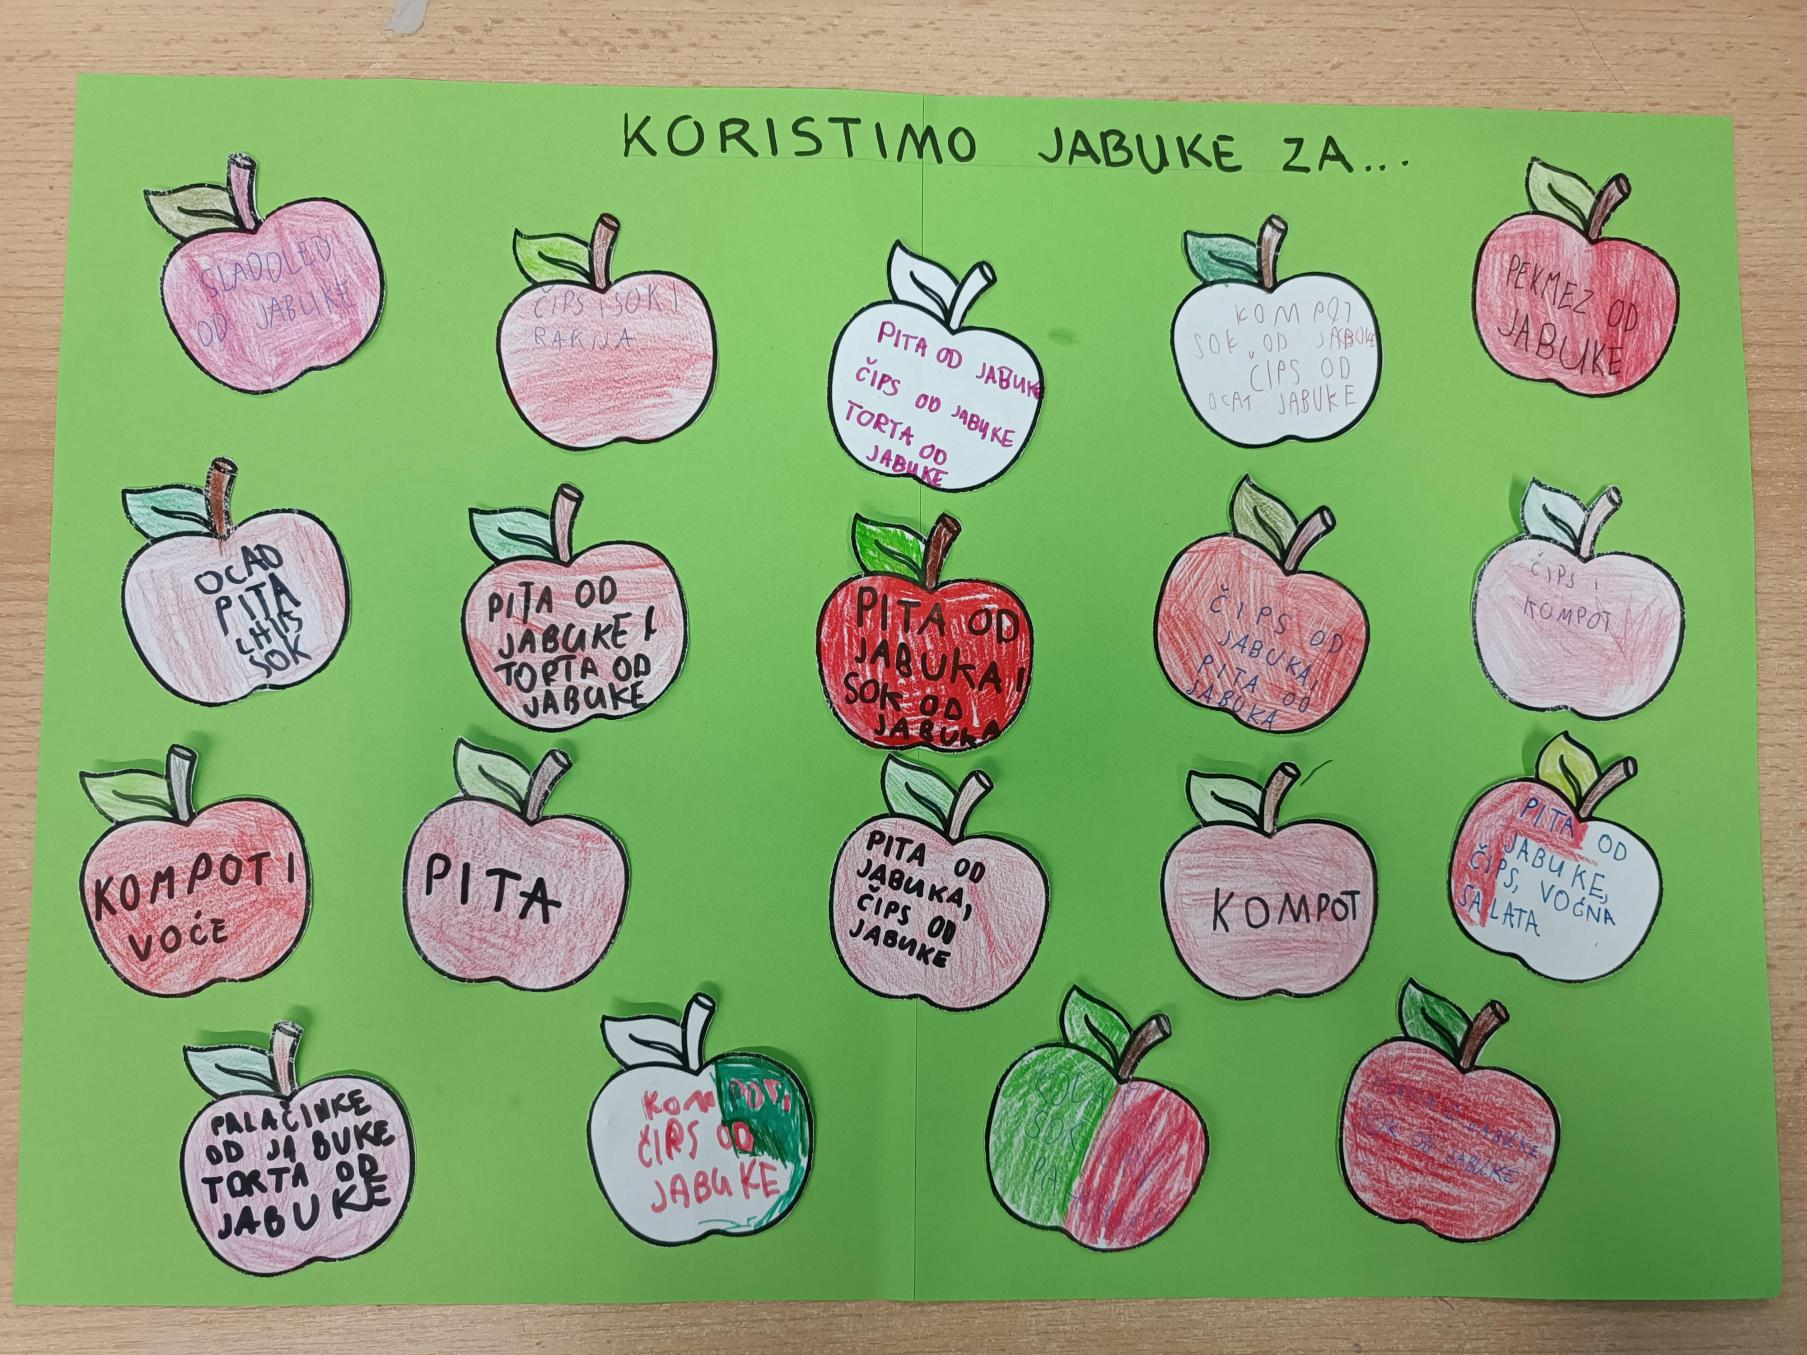 KORISTIMO JABUKE ZA...
SLADOLED
OD JABUKE
ČIPS I SOK I
RAKIJA
PITA OD JABUKE
ČIPS OD JABUKE
TORTA OD
JABUKE
KOMPOT
SOK OD JABUKE
ČIPS OD
OCAT JABUKE
PEKMEZ OD
JABUKE
OCAD
PITA
SOK
PITA OD
JABUKE I
TORTA OD
JABUKE
PITA OD
JABUKA I
SOK OD
JABUKA
ČIPS OD
JABUKA,
PITA OD
JABUKA
ČIPS I
KOMPOT
KOMPOT I
VOĆE
PITA
PITA OD
JABUKA,
ČIPS OD
JABUKE
KOMPOT
PITA OD
JABUKE,
ČIPS, VOĆNA
SALATA
PALAČINKE
OD JABUKE
TORTA OD
JABUKE
KOMPOT,
ČIPS OD
JABUKE
SOK
JABUKE
SOK OD JABUKE